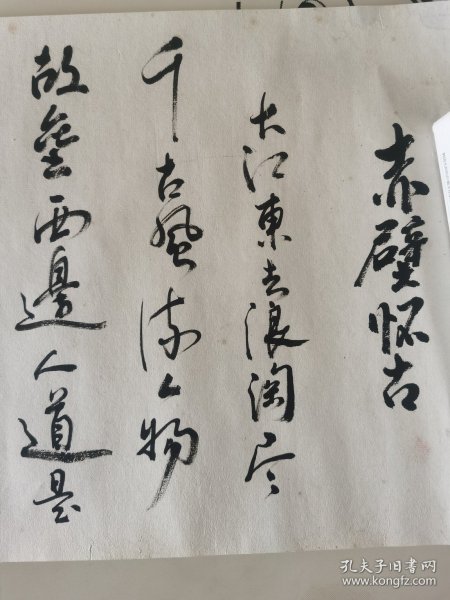 赤壁怀古
大江東去浪淘尽
千古風流人物
故壘西邊人道是
孔夫子旧书网
www.kongfz.com